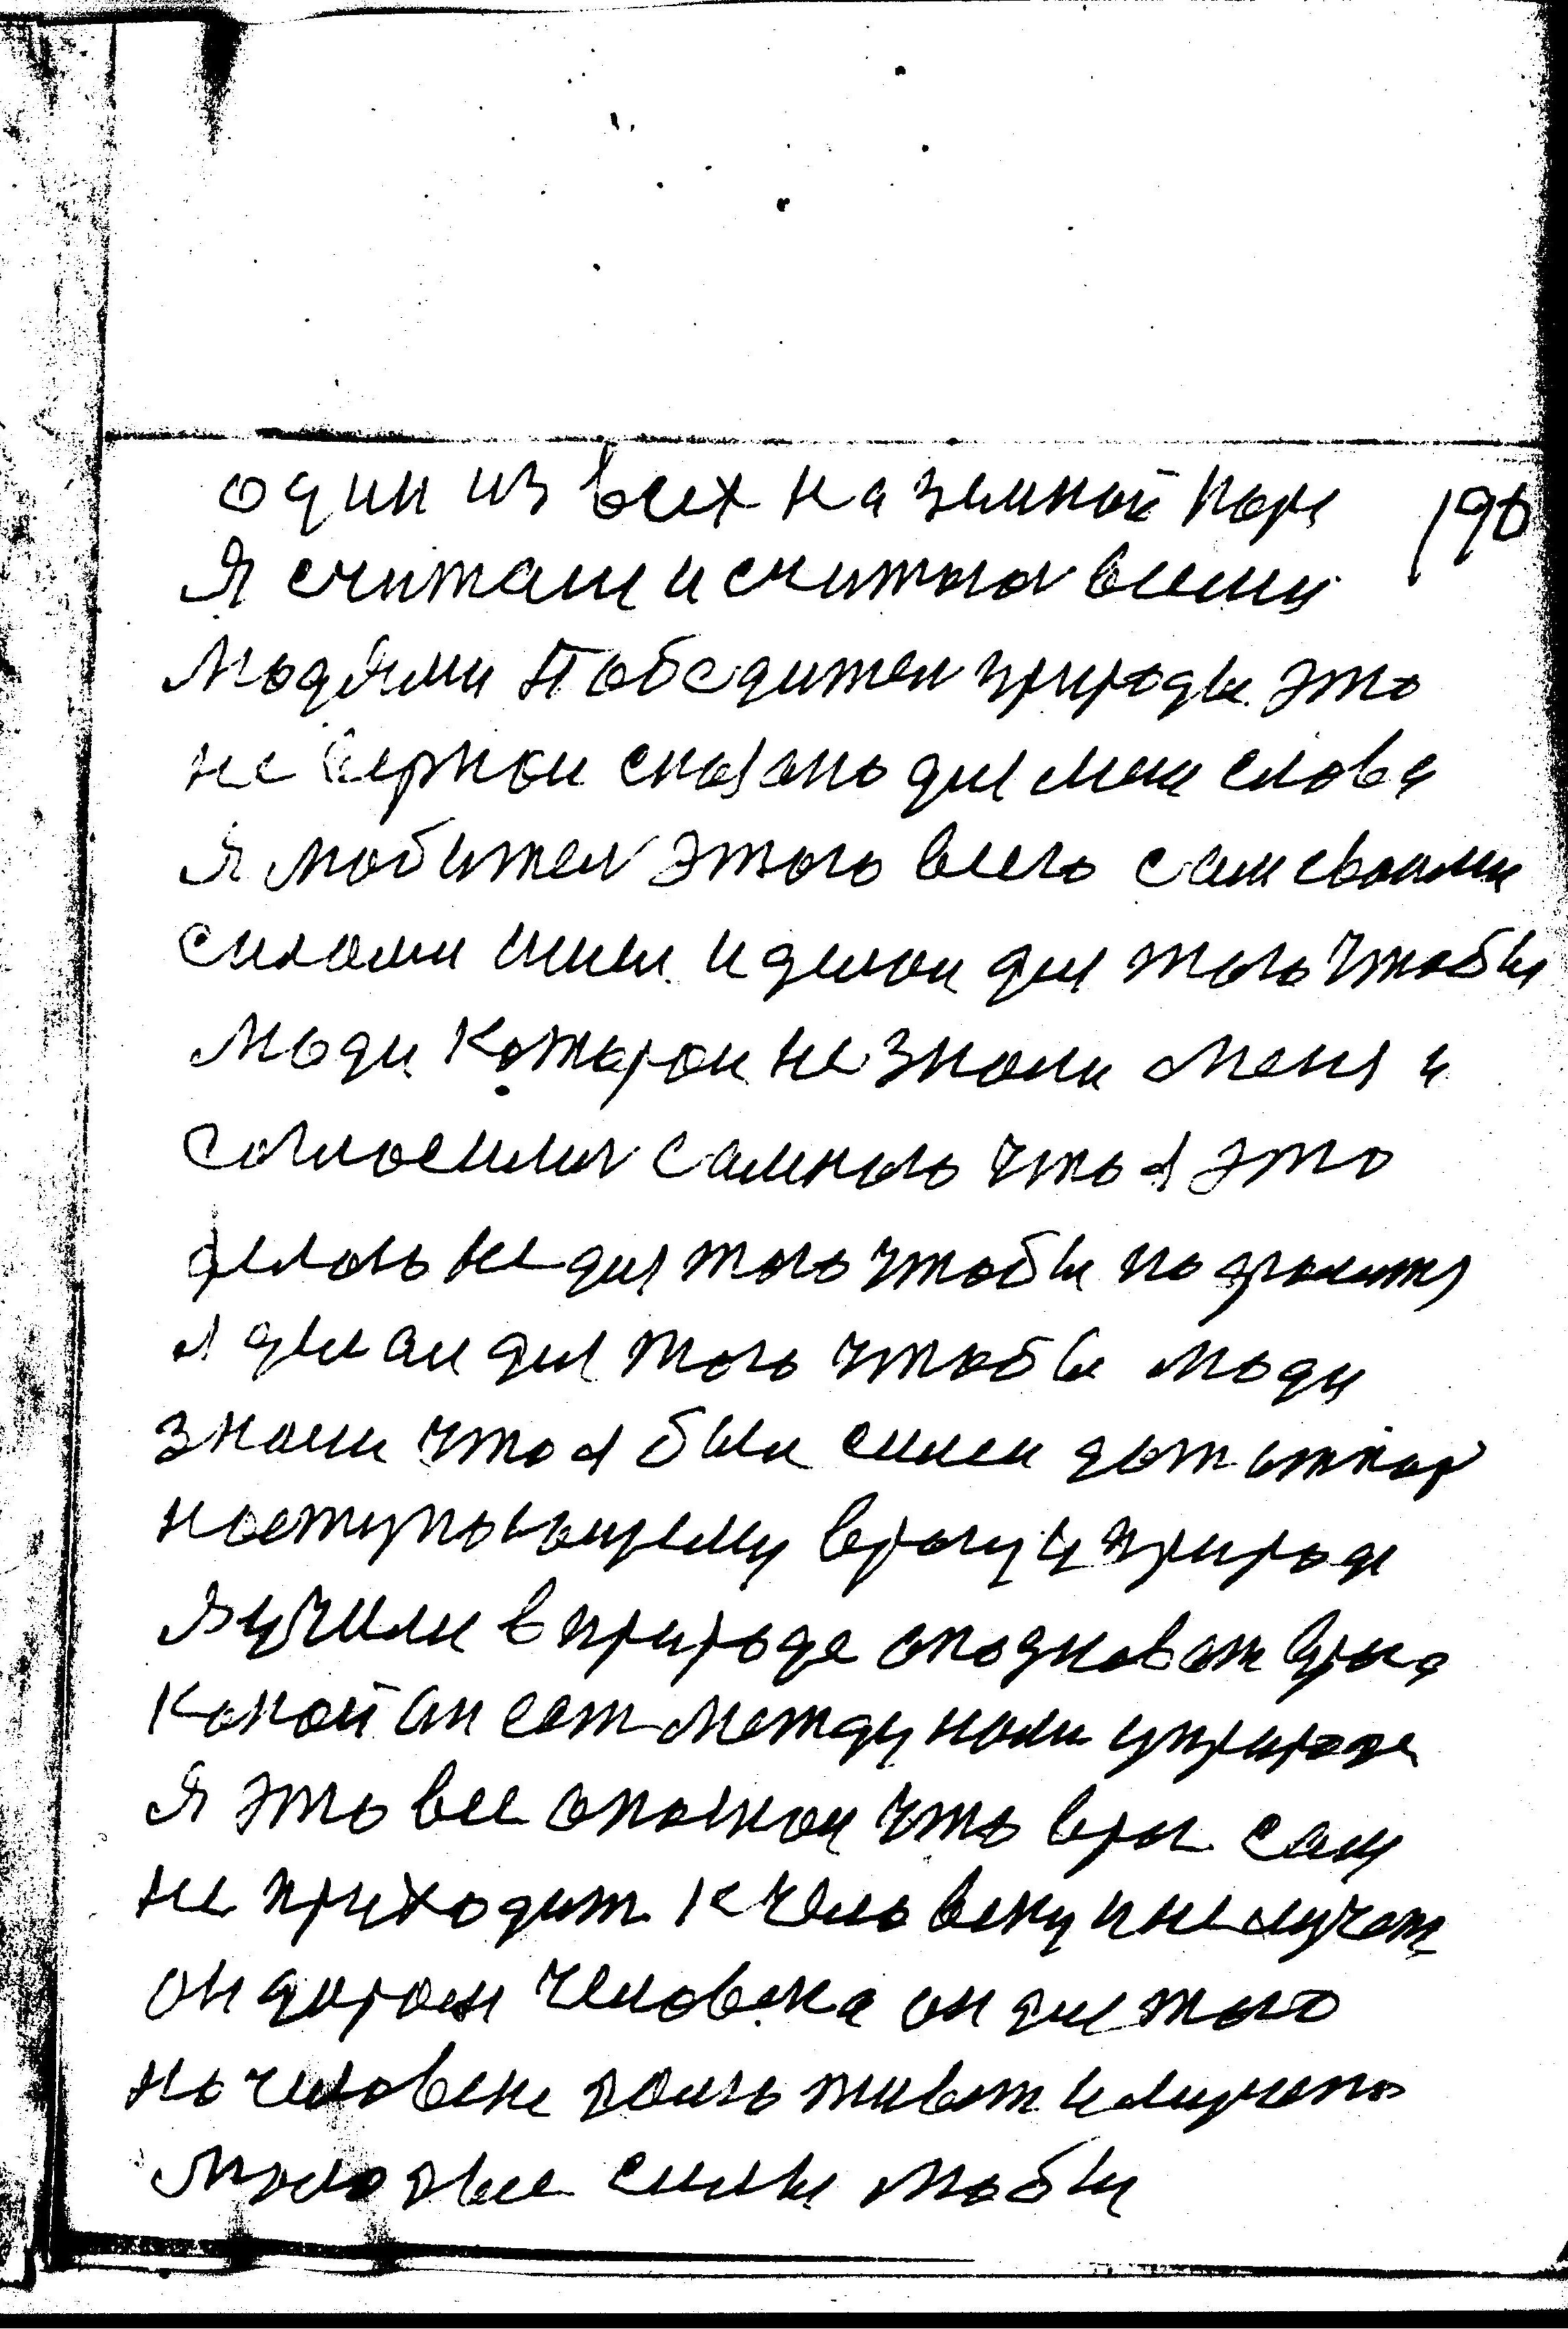 один из всех на земной коре 190
Я считали и считают всеми
людями Победител природы это
не верной сказано для мене слова
Я любител этого всего сам своими
силами имел и делаю для того чтобы
люди которои не знали меня и
согласилис самною что я это
делаю не для того чтобы
я делал для того чтобы люди
знали что я был силен дат отпор
наступающему врагу у природе
Я учился в природе опознават врага
какой он ест между нами у природе
Я это все опознал что враг сам
не приходит к человеку и не мучает
он человека он для того
на человека живет и мучает
молодые силы чтобы